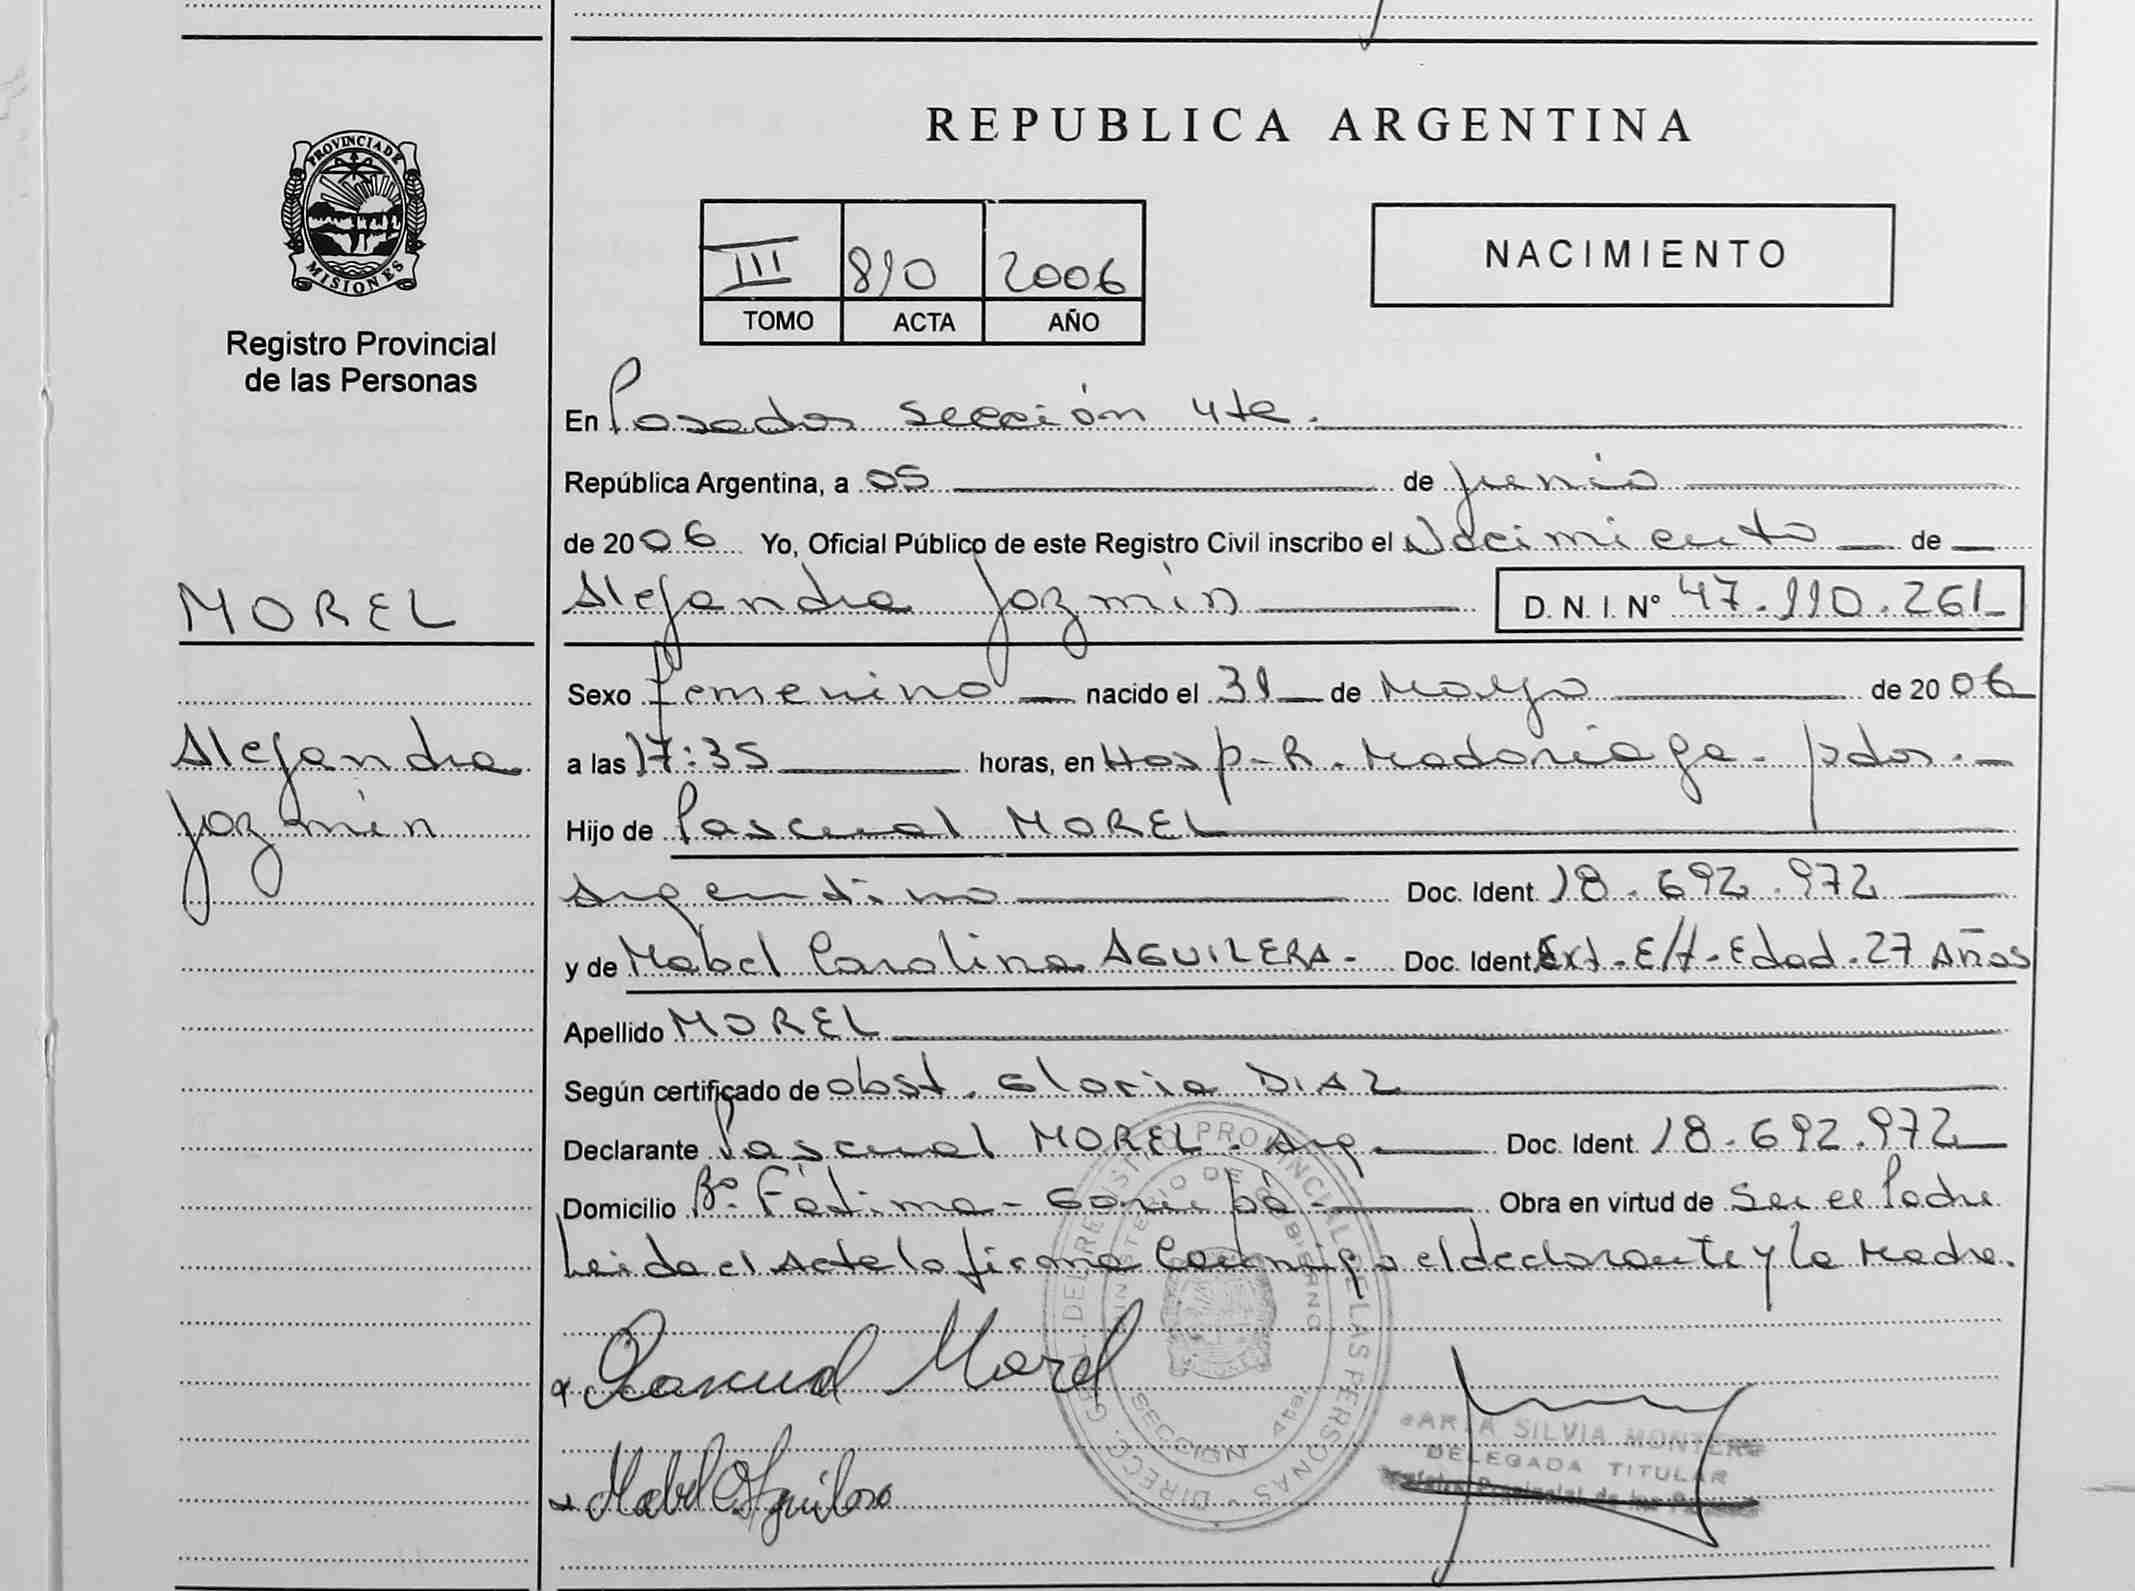 REPUBLICA ARGENTINA
PROVINCIA DE
MISIONES
Registro Provincial
de las Personas
III 810 2006
TOMO ACTA AÑO
NACIMIENTO
En Posadas sección 4ta.
República Argentina, a 05 de junio
de 2006 Yo, Oficial Público de este Registro Civil inscribo el Nacimiento de
MOREL
Alejandra Jazmin D. N. I. Nº 47.110.261
Sexo femenino nacido el 31 de Mayo de 2006
Alejandra
Jazmin
a las 17:35 horas, en Hosp-R. Madariaga-pdas.
Hijo de Pascual MOREL
Argentino Doc. Ident. 18.692.972
y de Mabel Carolina AGUILERA- Doc. Ident. Ext-E/t-Edad.27 Años
Apellido MOREL
Según certificado de obst. Gloria DIAZ
Declarante Pascual MOREL. Arg Doc. Ident. 18.692.972
Domicilio Bº. Fátima-Garupá- Obra en virtud de Ser el Padre
Leida el Acta la firma conmigo el declarante y la Madre.
Pascual Morel
DIRECC. GRAL. DEL REGISTRO PROVINCIAL DE LAS PERSONAS
MINISTERIO DE GOBIERNO
SECCION 4ta
SILVIA
DELEGADA TITULAR
Provincial de las
Mabel C Aguilera